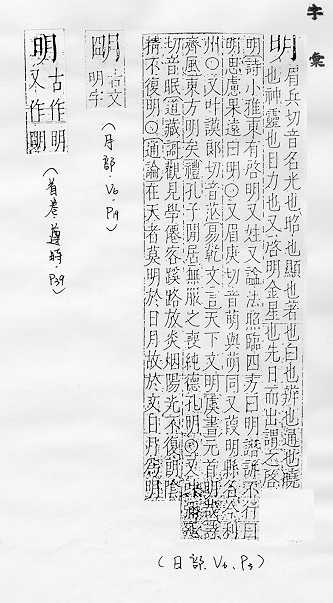 字彙
明 眉兵切音名光也昭也顯也著也白也辨也通也曉
也神靈也目力也又啓明金星也先日而出謂之啓
明詩小雅東有啓明又姓又諡法照臨四方曰明譖訴不行曰
明思慮果遠曰明〇又眉庚切音萌與萌同又葭明縣名
州〇又叶謨郎切音茫易乾文言天下文明虞書元首明哉
齊風東方明矣禮孔子閒居無服之喪純德孔明〇又叶
切音眠道藏歌觀見學僊客蹊路放炎烟陽光不復朗陰
精不復明〇通論在天者莫明於日月故於文日月爲明
(日部.V6.P3)
明 古文
明字
(月部.V6.P19)
明 古作明
又作朙
(首卷遵時.P39)